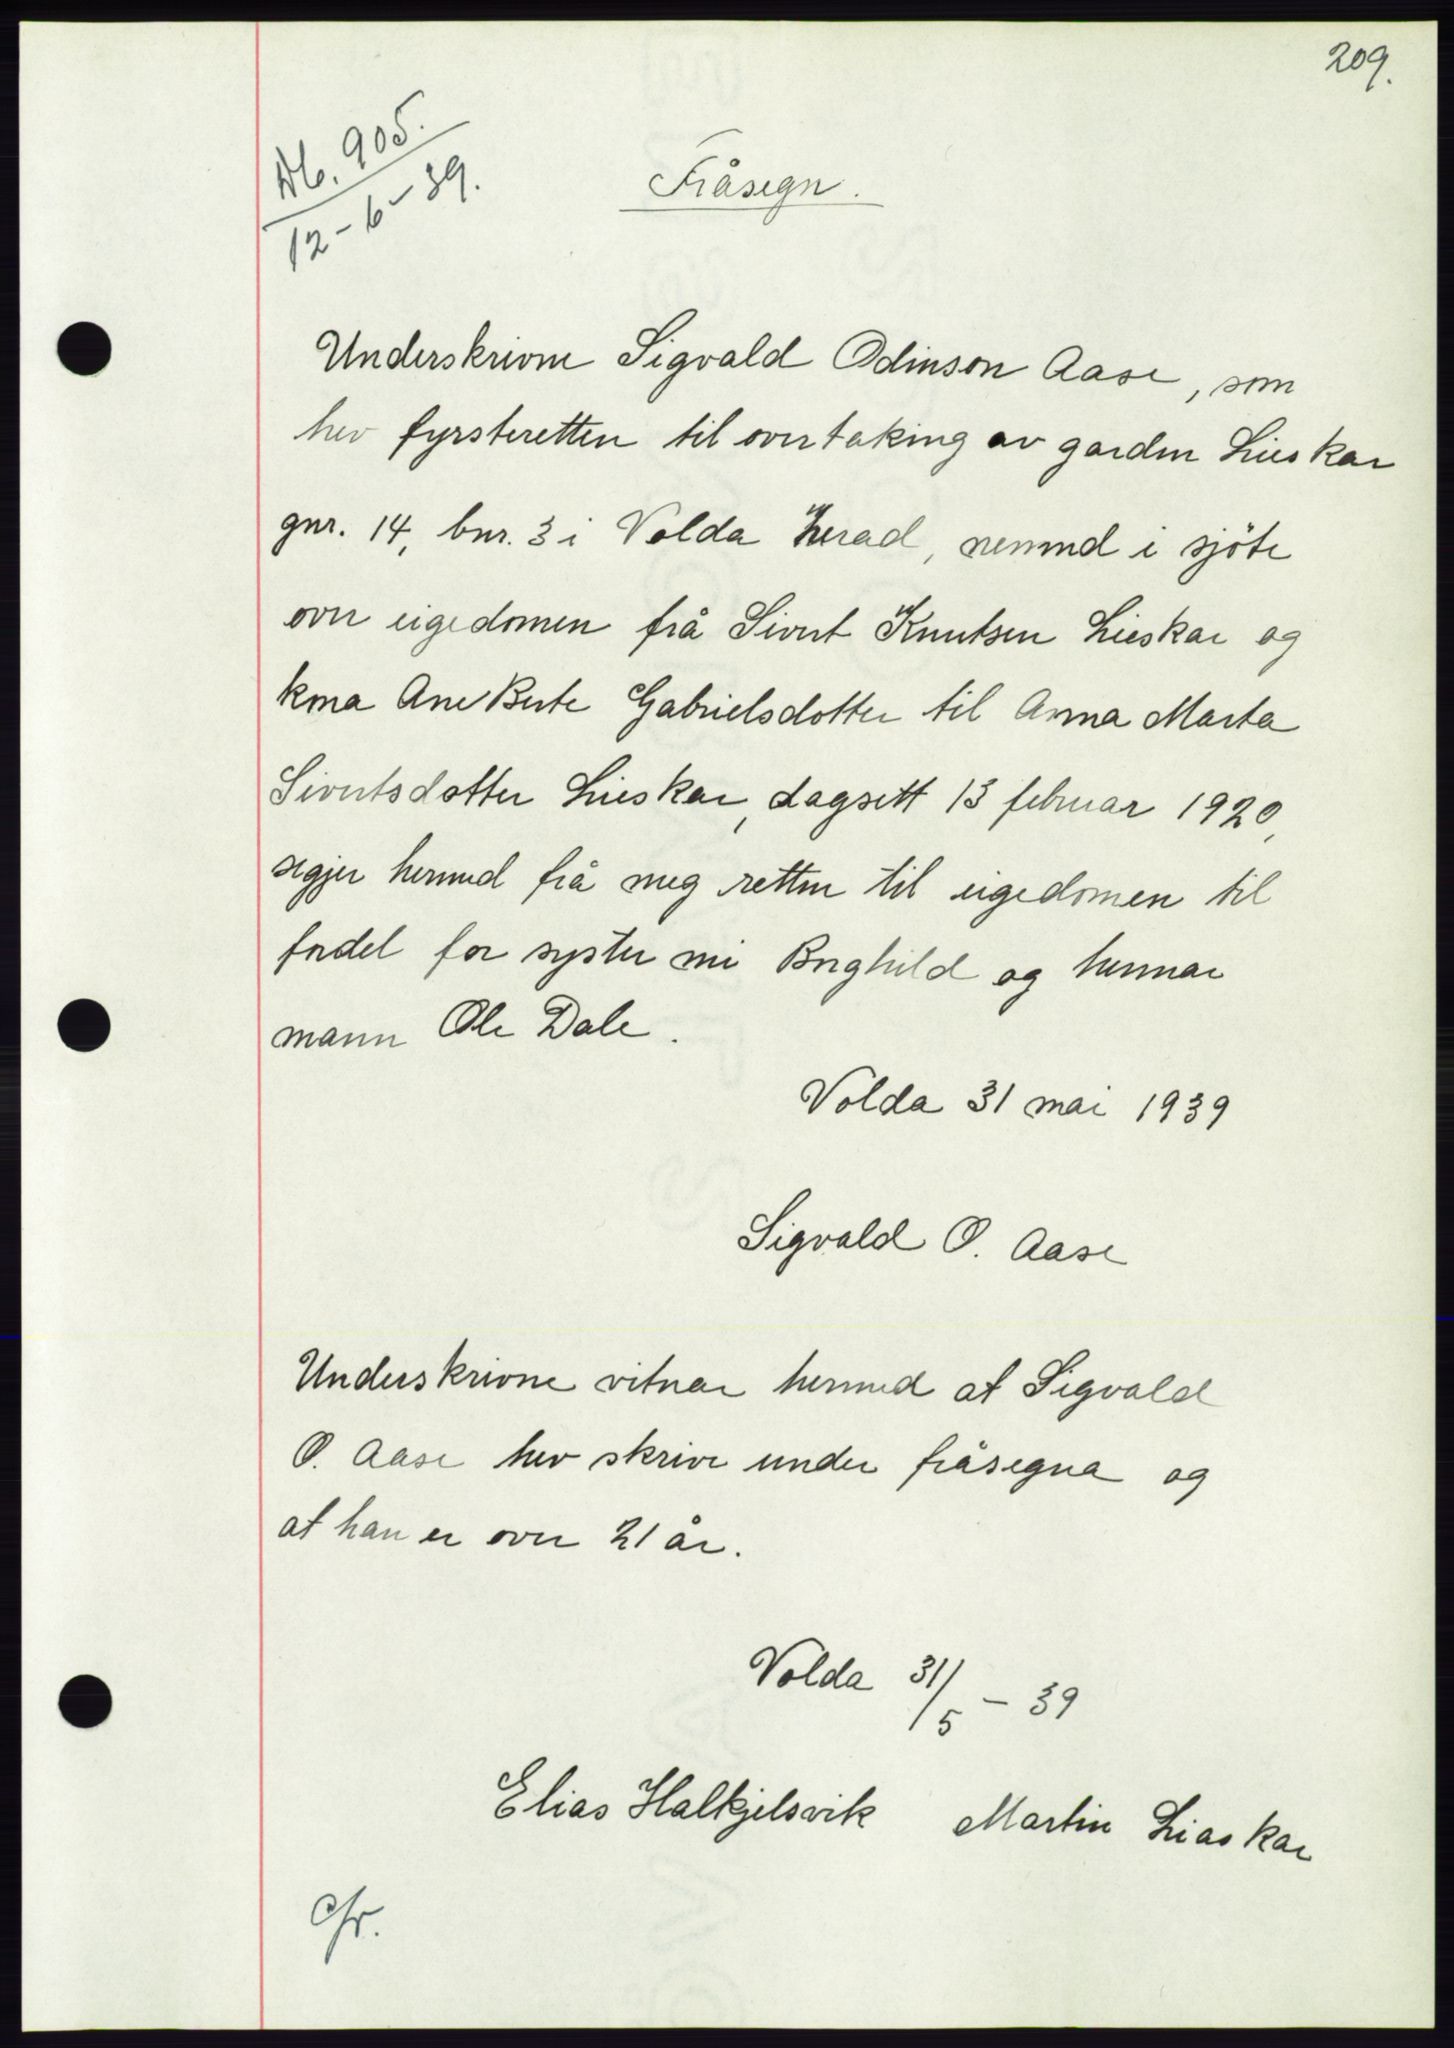 209.
Db. 905.
12-6-39.
Fråsegn.
Underskrivne Sigvald Odinson Aase, som
hev fyrsteretten til overtaking av garden Lieskar
gnr. 14, bnr. 3 i Volda herad, nemnd i sjöte
over eigedomen frå Sivert Knutsen Lieskar og
kona Ane Berte Gabrielsdotter til Anna Marta
Sivertsdotter Lieskar, dagsett 13 februar 1920,
segjer hermed frå meg retten til eigedomen til
fordel for syster mi Borghild og hennar
mann Ole Dale.
Volda 31 mai 1939
Sigvald O. Aase
Underskrivne vitnar hermed at Sigvald
O. Aase hev skrive under fråsegna og
at han er over 21 år.
Volda 31/5 - 39
Elias Halkjelsvik Martin Liaskar